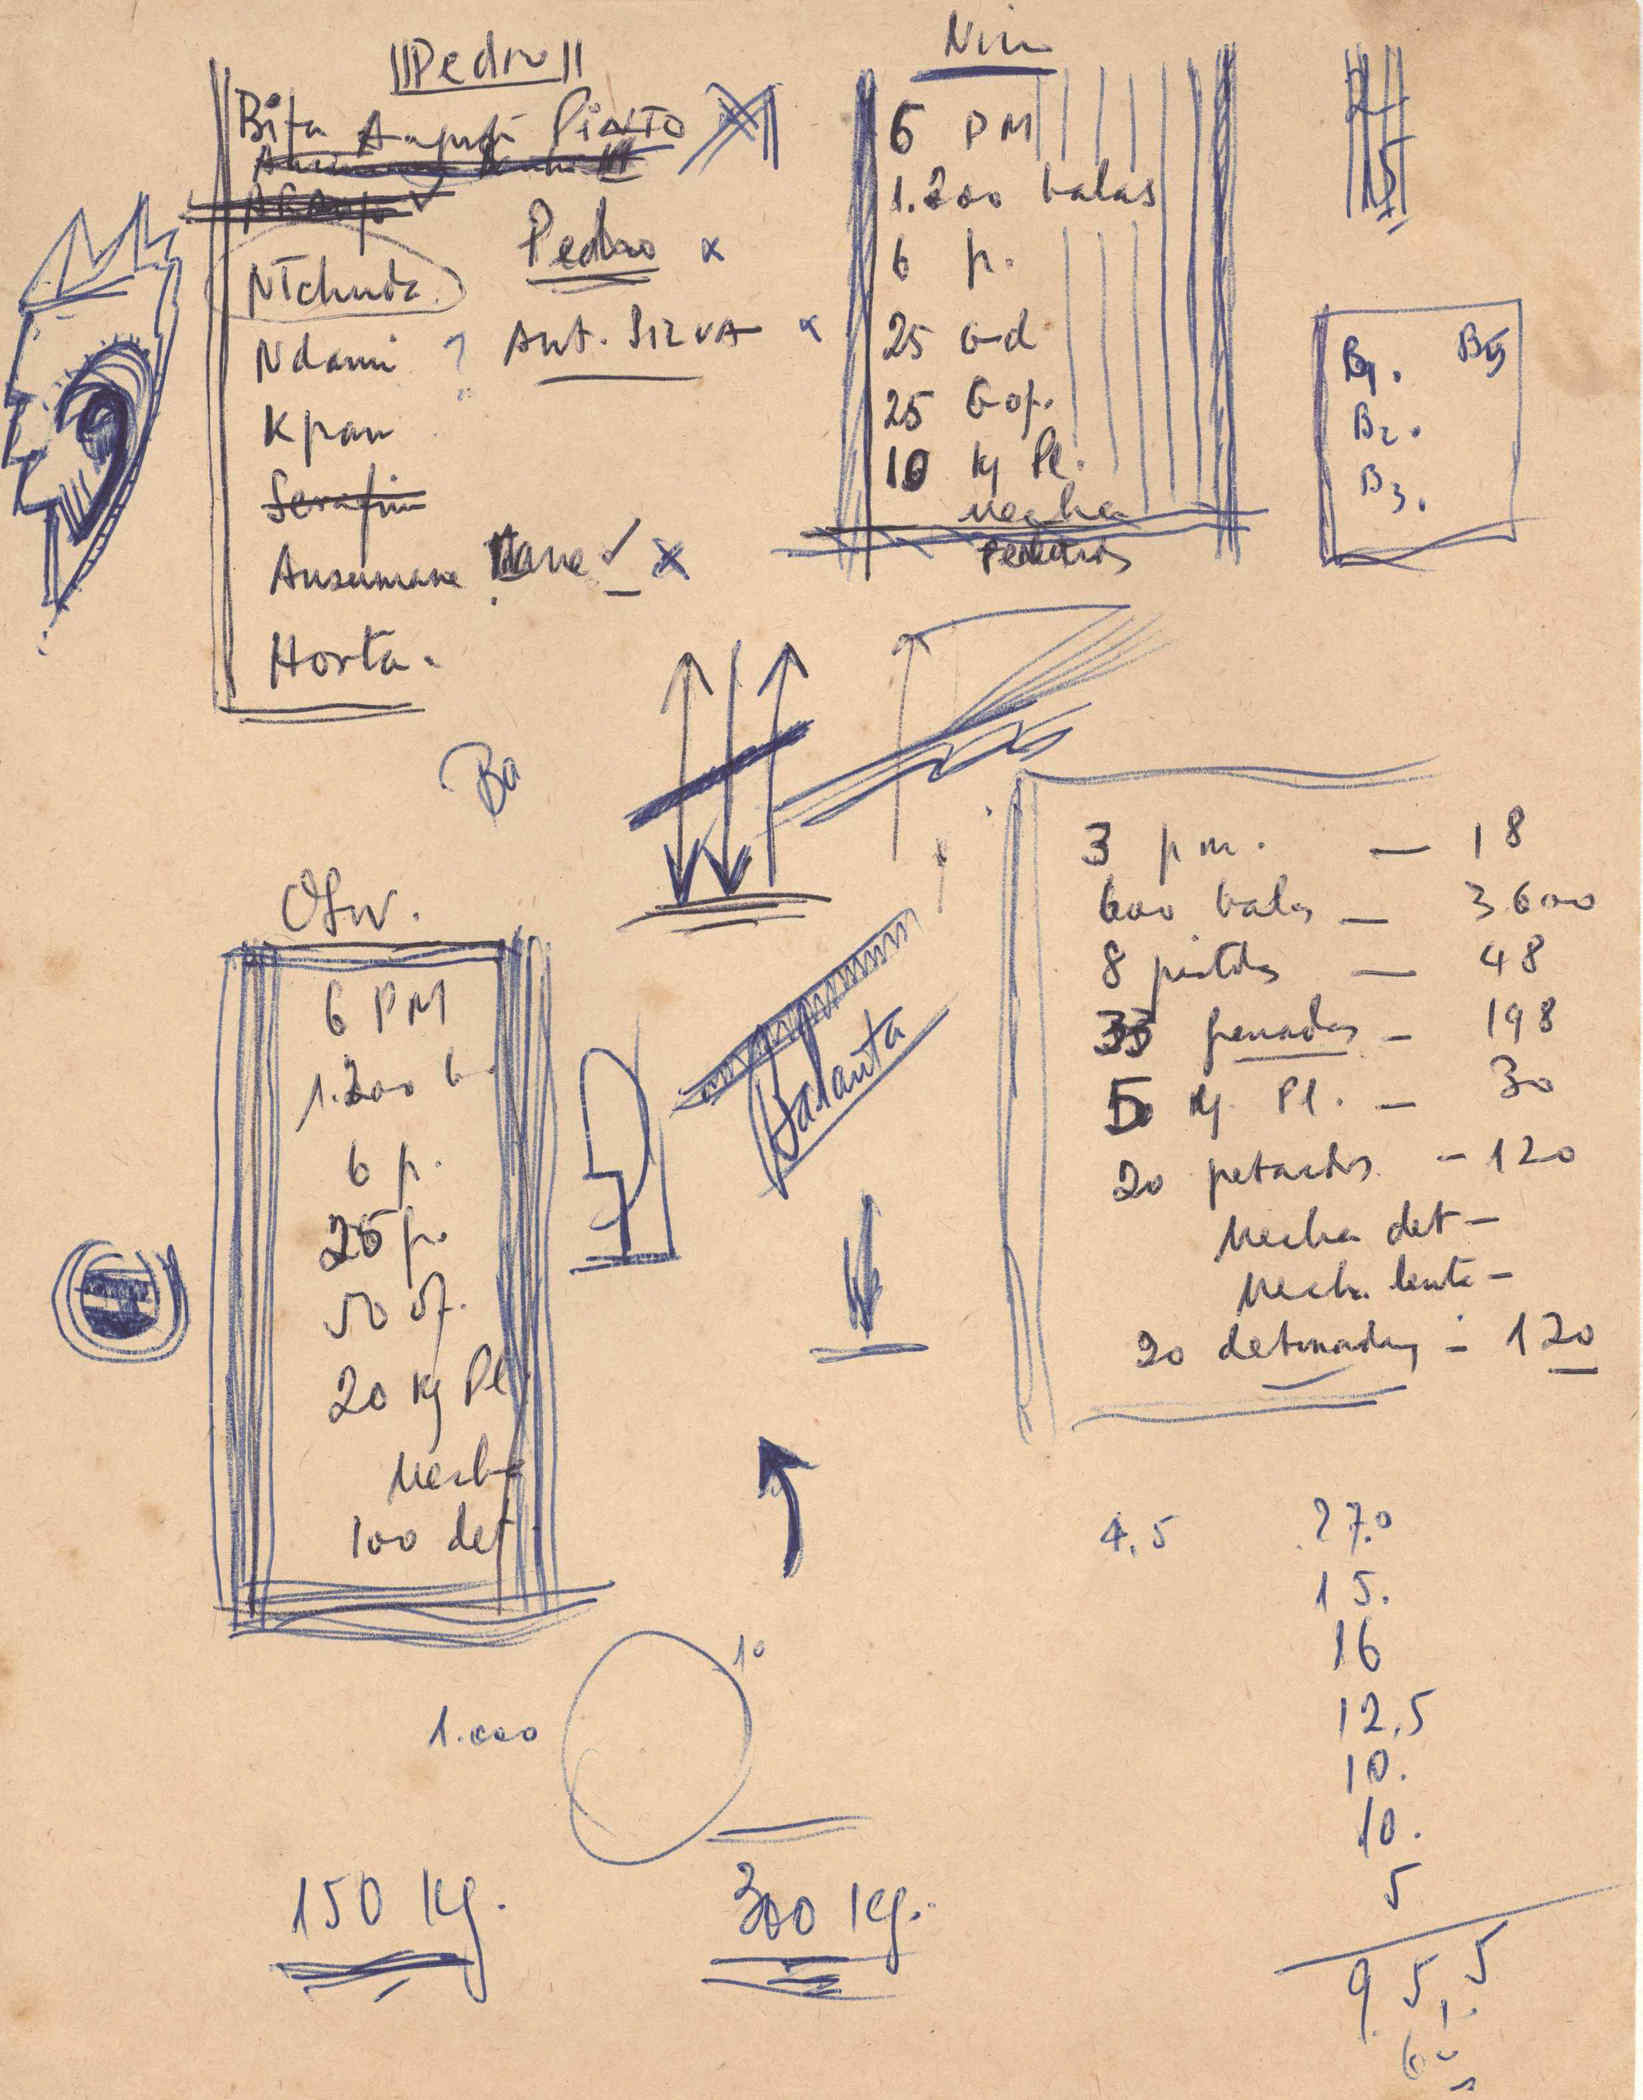 Pedro
Bita
PINTO
Ntchuda.
Pedro x
Ndami ? Ant. SILVA x
Kpan
Serafim
Ansumane Mane ✓ x
Horta.
Nin
6 PM
1.200 balas
6 p.
25 Gd
25 Gof.
10 Kg Pl.
Mecha
Petardos
15
B1. B5
B2.
B3.
Ba
Osv.
6 PM
1.200 b.
6 p.
25 p.
50 of.
20 Kg Pl
Mecha
100 det.
Balanta
3 pm. — 18
600 balas — 3.600
8 pistolas — 48
33 granadas — 198
5 Kg. Pl. — 30
20 petardos — 120
Mecha det —
Mecha lenta —
20 detonadores — 120
4,5 27.0
15.
16
12,5
10.
10.
5
95,5
10
1.000
150 Kg.
300 Kg.